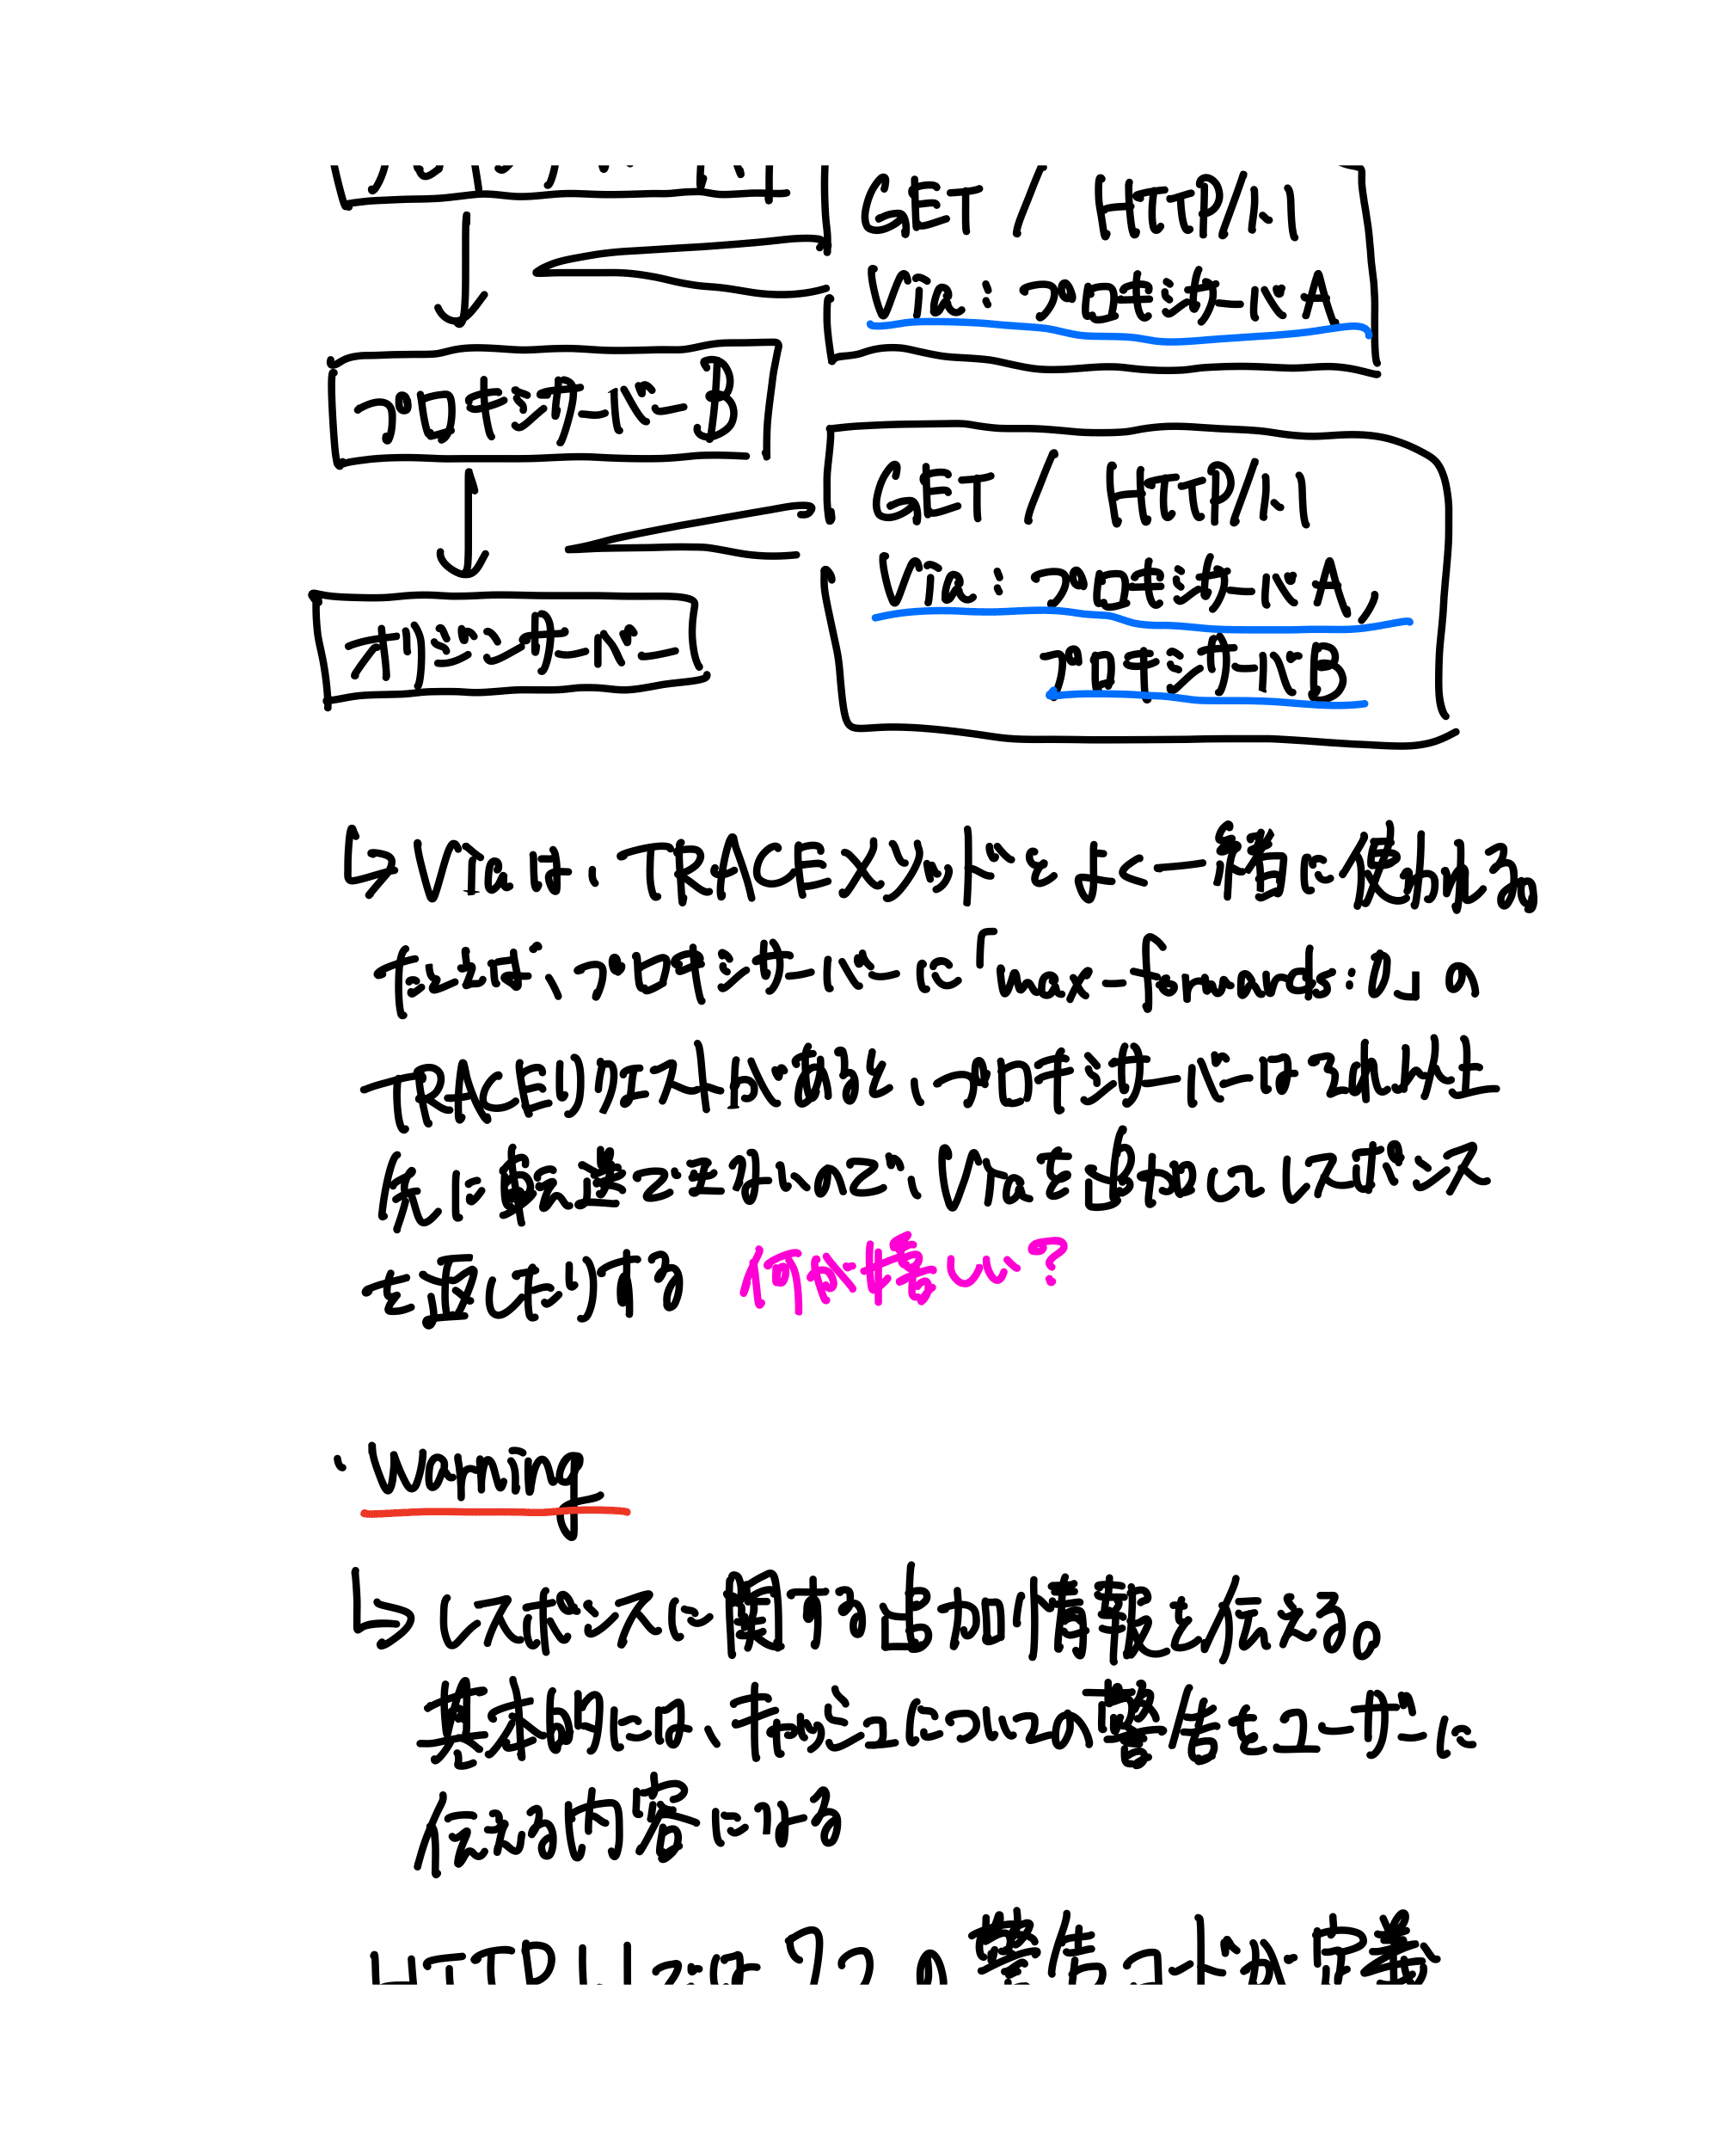 GET / HTTP/1.1
Via: プロキシサーバA
プロキシサーバーB
GET / HTTP/1.1
Via: プロキシサーバA,
プロキシサーバB
オリジンサーバー
↳ Viaは、TRACEメソッドとよく一緒に使われる。
たとえば、プロキシサーバーに「max-forwards:0」の
TRACEリクエストがあると、プロキシサーバーはそれ以上
先に転送できないので、Viaを追加してレスポンス
を返したりする 何が嬉しい?
・Warning
↳ レスポンスに関する追加情報を伝える。
基本的には、キャッシュについての警告をユーザーに
伝える内容になる
HTTP/1.1では7つの警告コードが定義